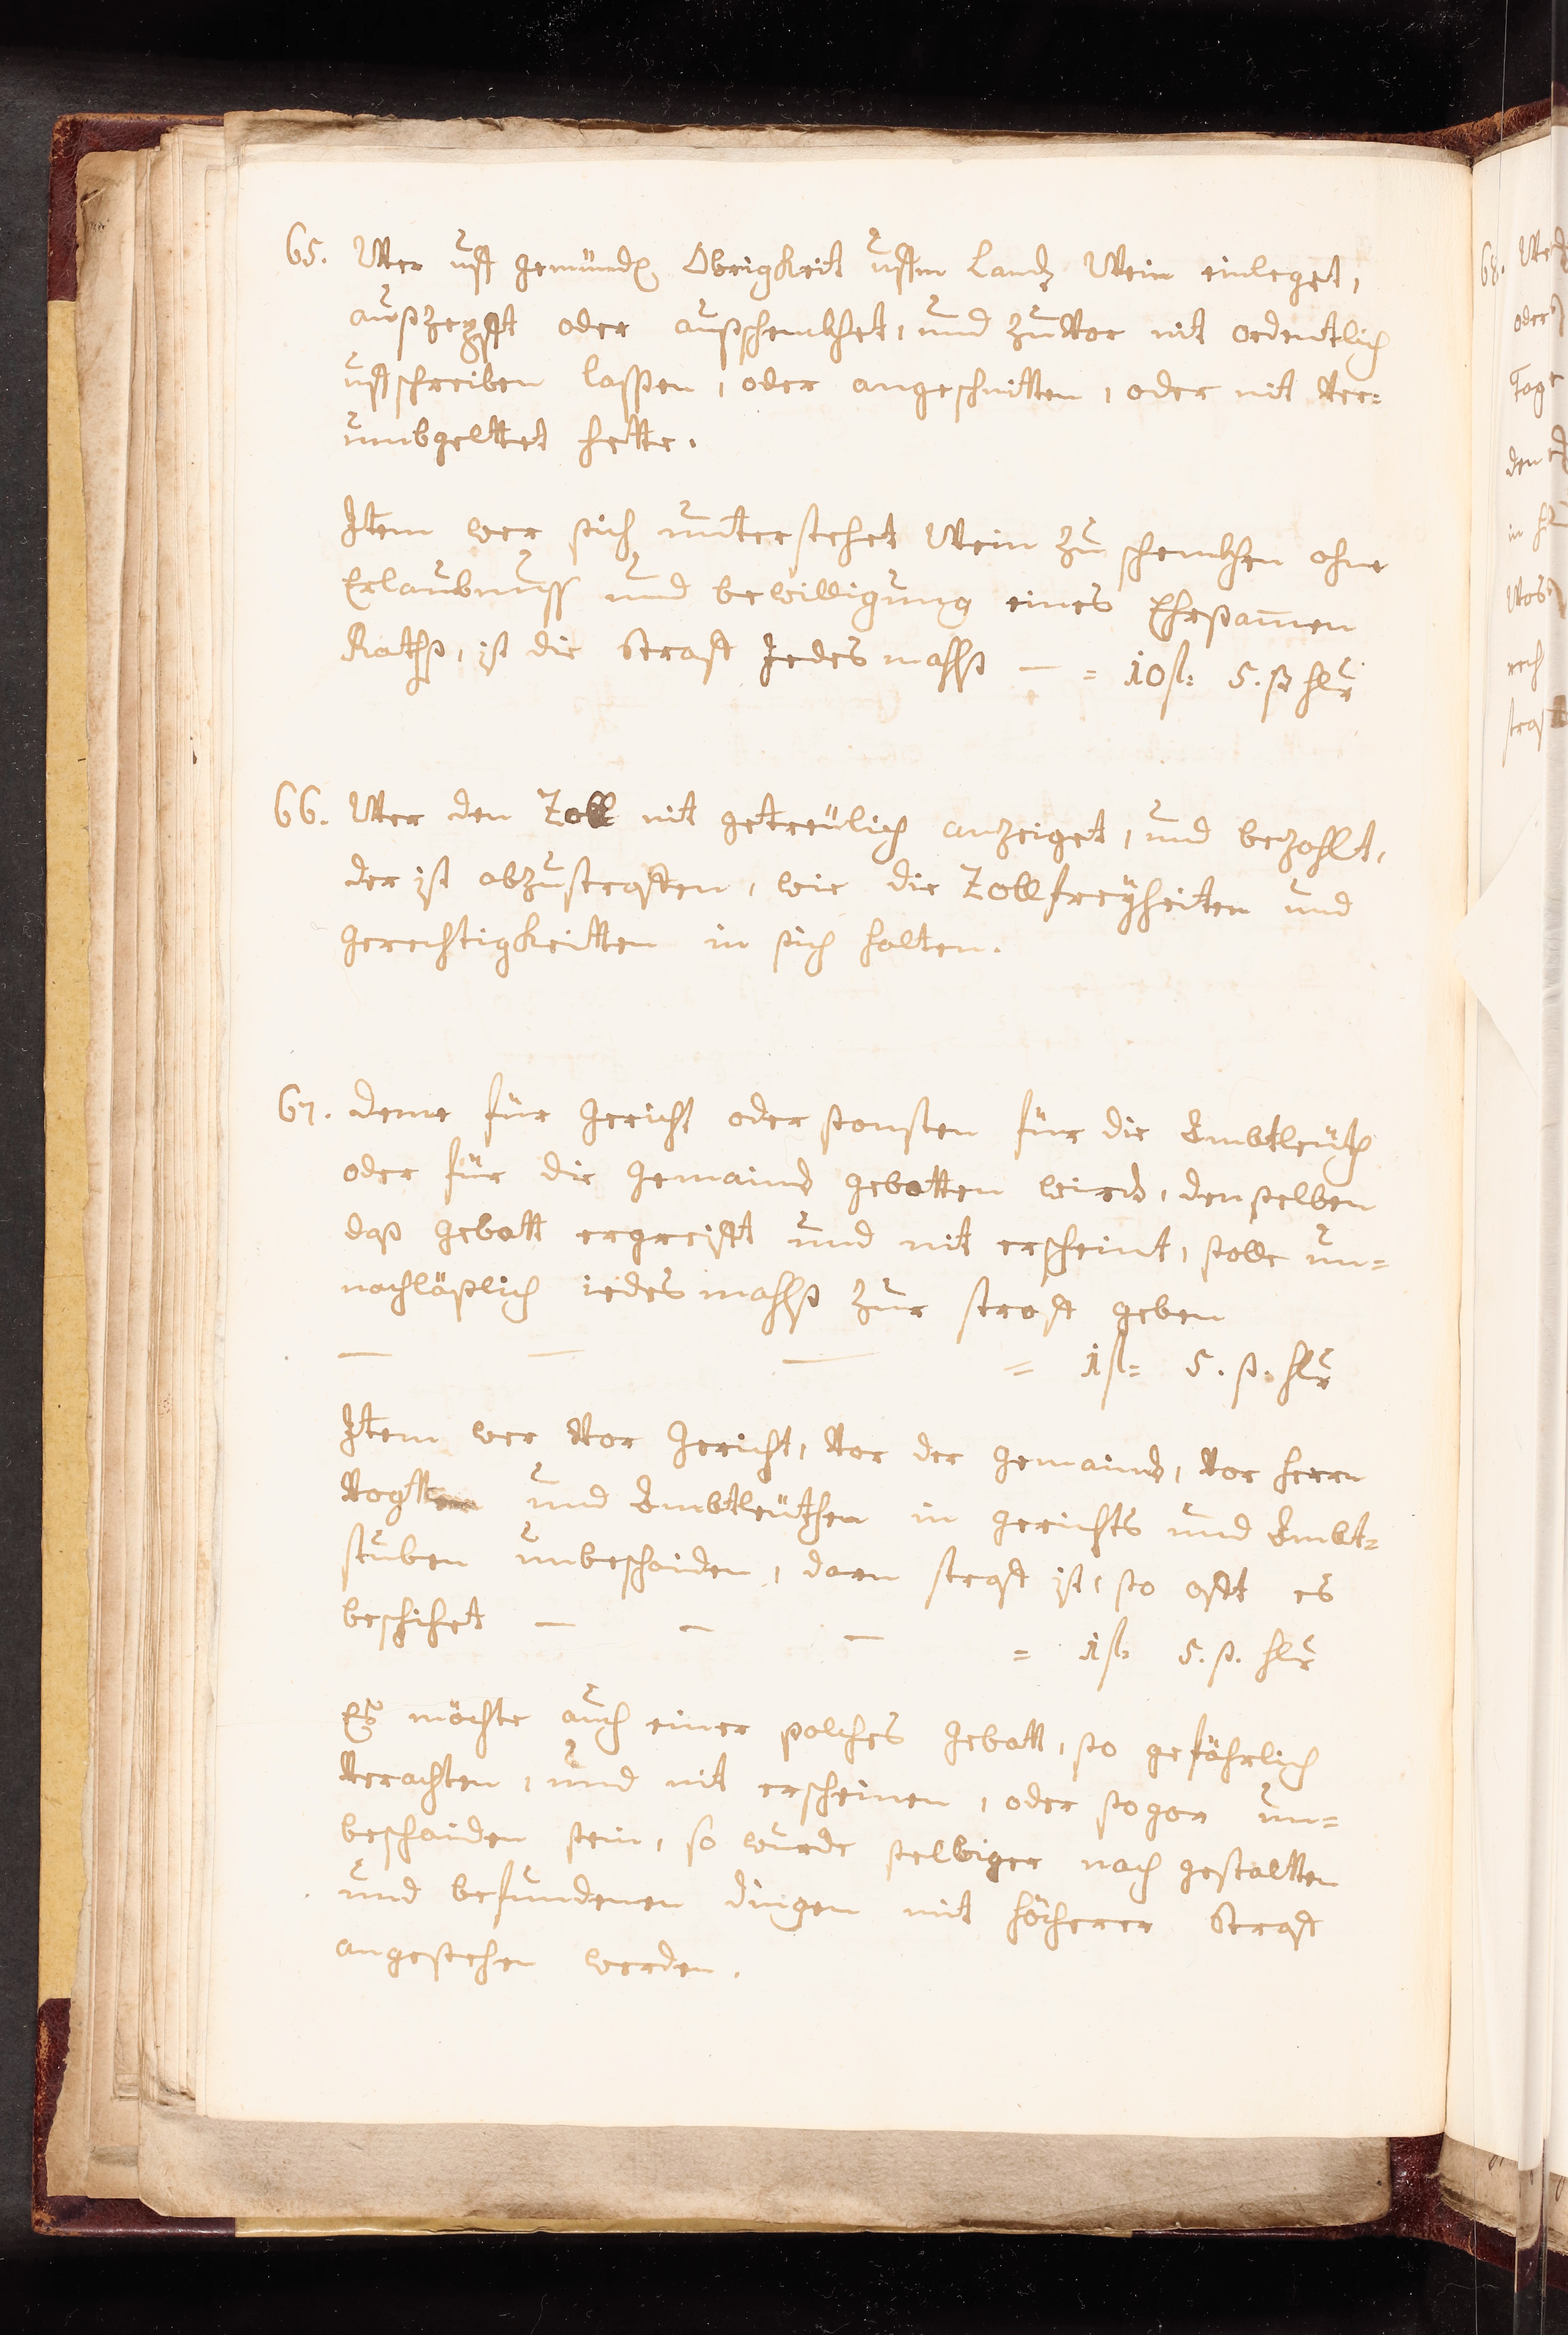 65. Wer uff gemündl. Obrigkeit uffm Landt Wein einleget,
außzepfft oder außschenkhet, und zuvor nit ordentlich
uffschreiben lassen, oder angeschnitten, oder nit ver=
umbgeltet hette.
Item wer sich unterstehet Wein zu schenkhen ohne
Erlaubnuss und bewilligung eines Ehrsamen
Raths, ist die Straff Jedes mahlß — = 10 fl: 5. ß hlr
66. Wer den Zoll nit getreülich anzeiget, und bezahlt,
der ist abzustraffen, wie die Zollfreyheiten und
gerechtigkeitten in sich halten.
67. deme für gericht oder sonsten für die Ambtleüth
oder für die gemaind gebotten wird, denselben
daß gebott ergreifft und nit erscheint, solle un=
nachläßlich iedes mahlß zur straff geben
— — — = 1 fl= 5. ß. hlr
Item wer vor gericht, vor der gemaind, vor herrn
Vogtten und Ambtleüthen in gerichts und Ambt=
stuben unbeschaiden, deren straff ist, so offt es
beschihet — — — = 1 fl: 5. ß. hlr
Es möchte auch einer solches gebott, so gefährlich
verachten, und nit erscheinen, oder sogar un=
beschaiden sein, so wurde selbiger nach gestaltten
und befundenen dingen mit höcherer Straff
angesehen werden.
68. We
oder
Tag
den
in
Vos
rech
straf